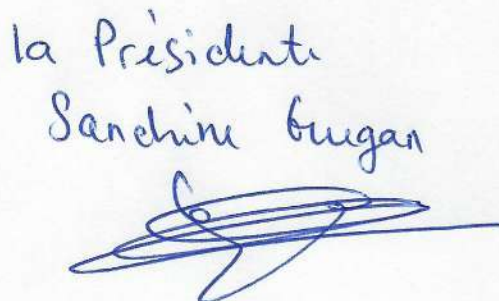 la Présidente
Sandrine Guegan